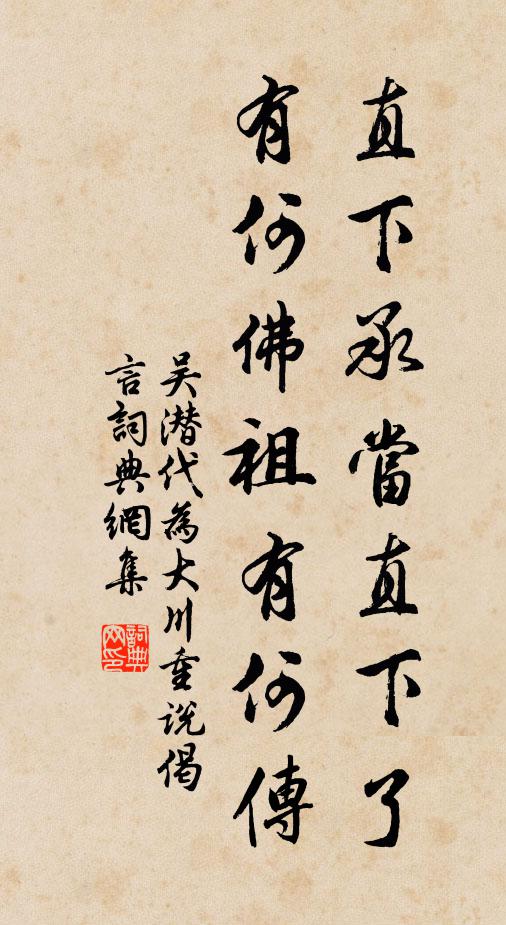 直下承當直下了
有何佛祖有何傳
吴潜代為大川重説偈
言詞典網集
詞典
网印